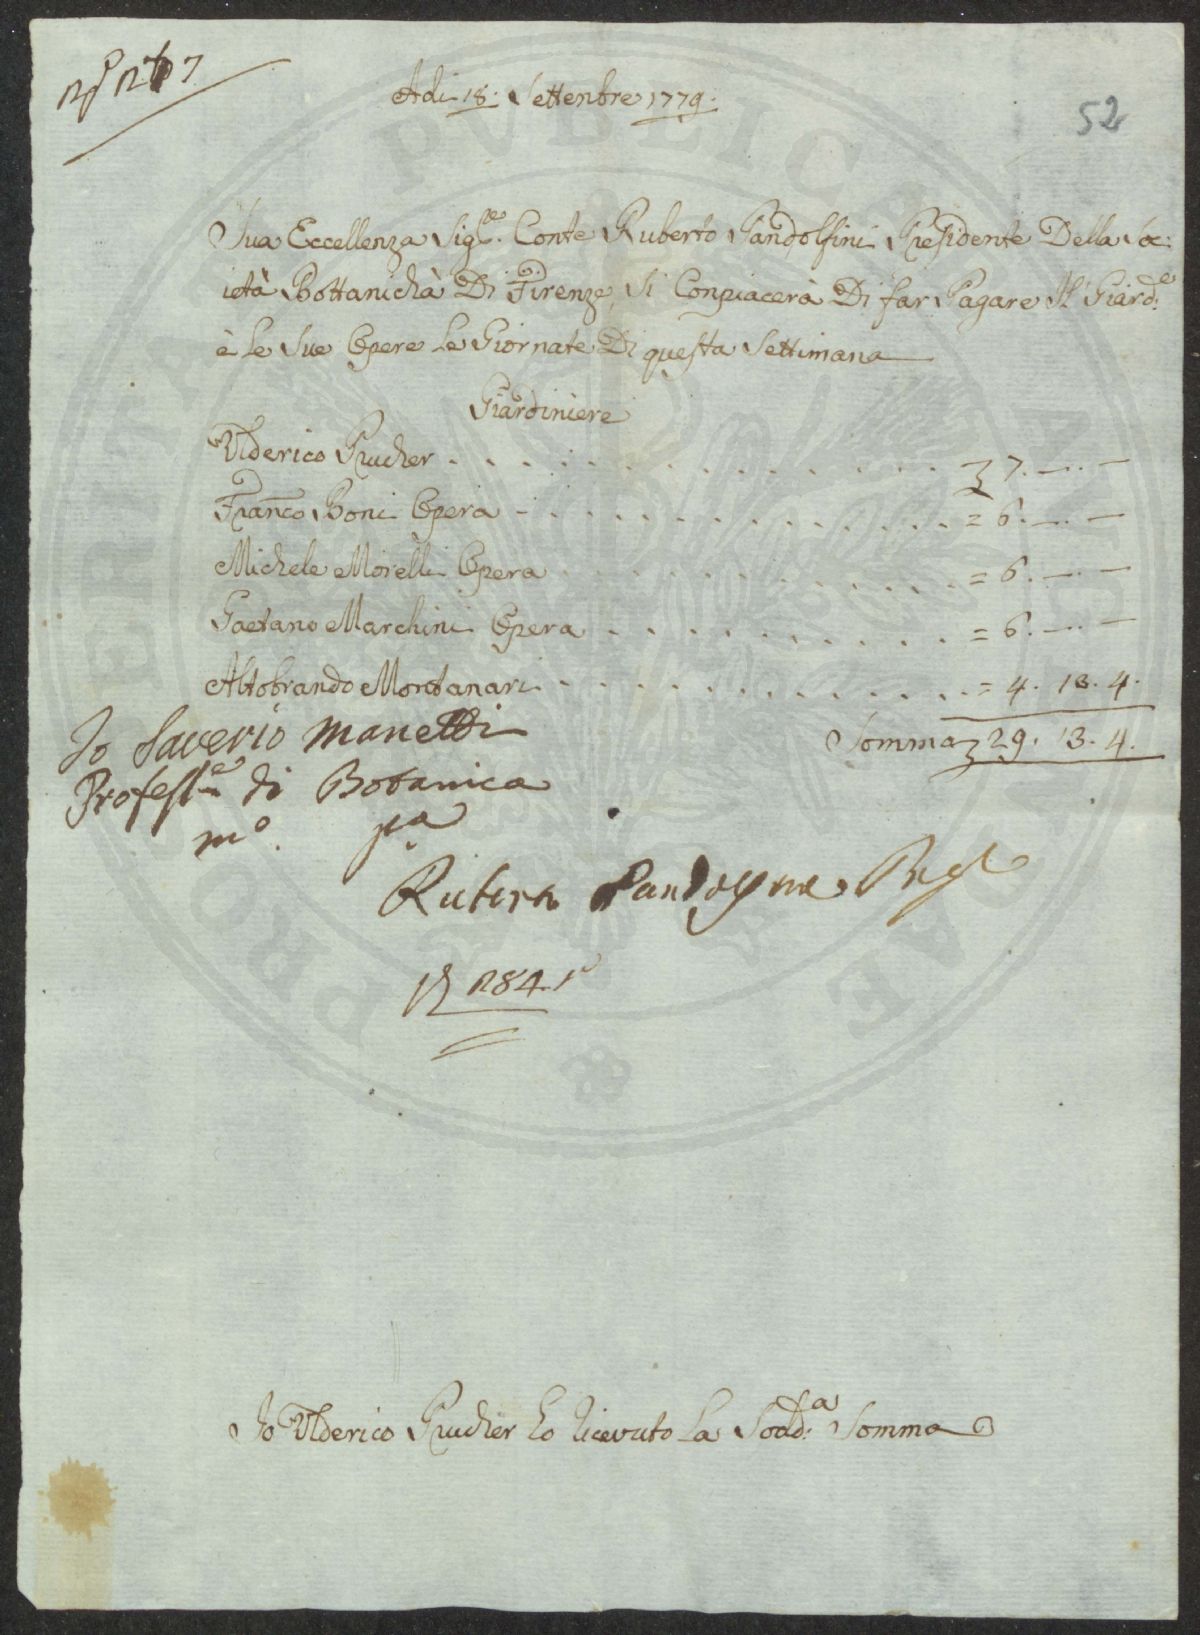 Adi 18. Settenbre 1779.
52
Sua Eccellenza Sig.re Conte Ruberto Pandolfini Presidente Della Soc:
ietà Bottanichà Di Firenze, Si Conpiacerà Di far Pagare Il Giard.e
è le Sue Opere le Giornate Di questa Settimana
Giardiniere
Ulderico Prucher . . . . . . . . . . . . 7. —. —
Franco Boni Opera . . . . . . . . . . . . = 6. —. —
Michele Morelli Opera . . . . . . . . . . = 6. —. —
Gaetano Marchini Opera . . . . . . . . . . = 6. —. —
Altobrando Montanari . . . . . . . . . . . = 4. 13. 4.
Somma 29. 13. 4.
Io Saverio Manetti
Profess.re di Botanica
m.o p.a
Ruberto Pandolfini
284
Io Ulderico Prucher ho ricevuto la Sodd.a Somma
PVBLICAE